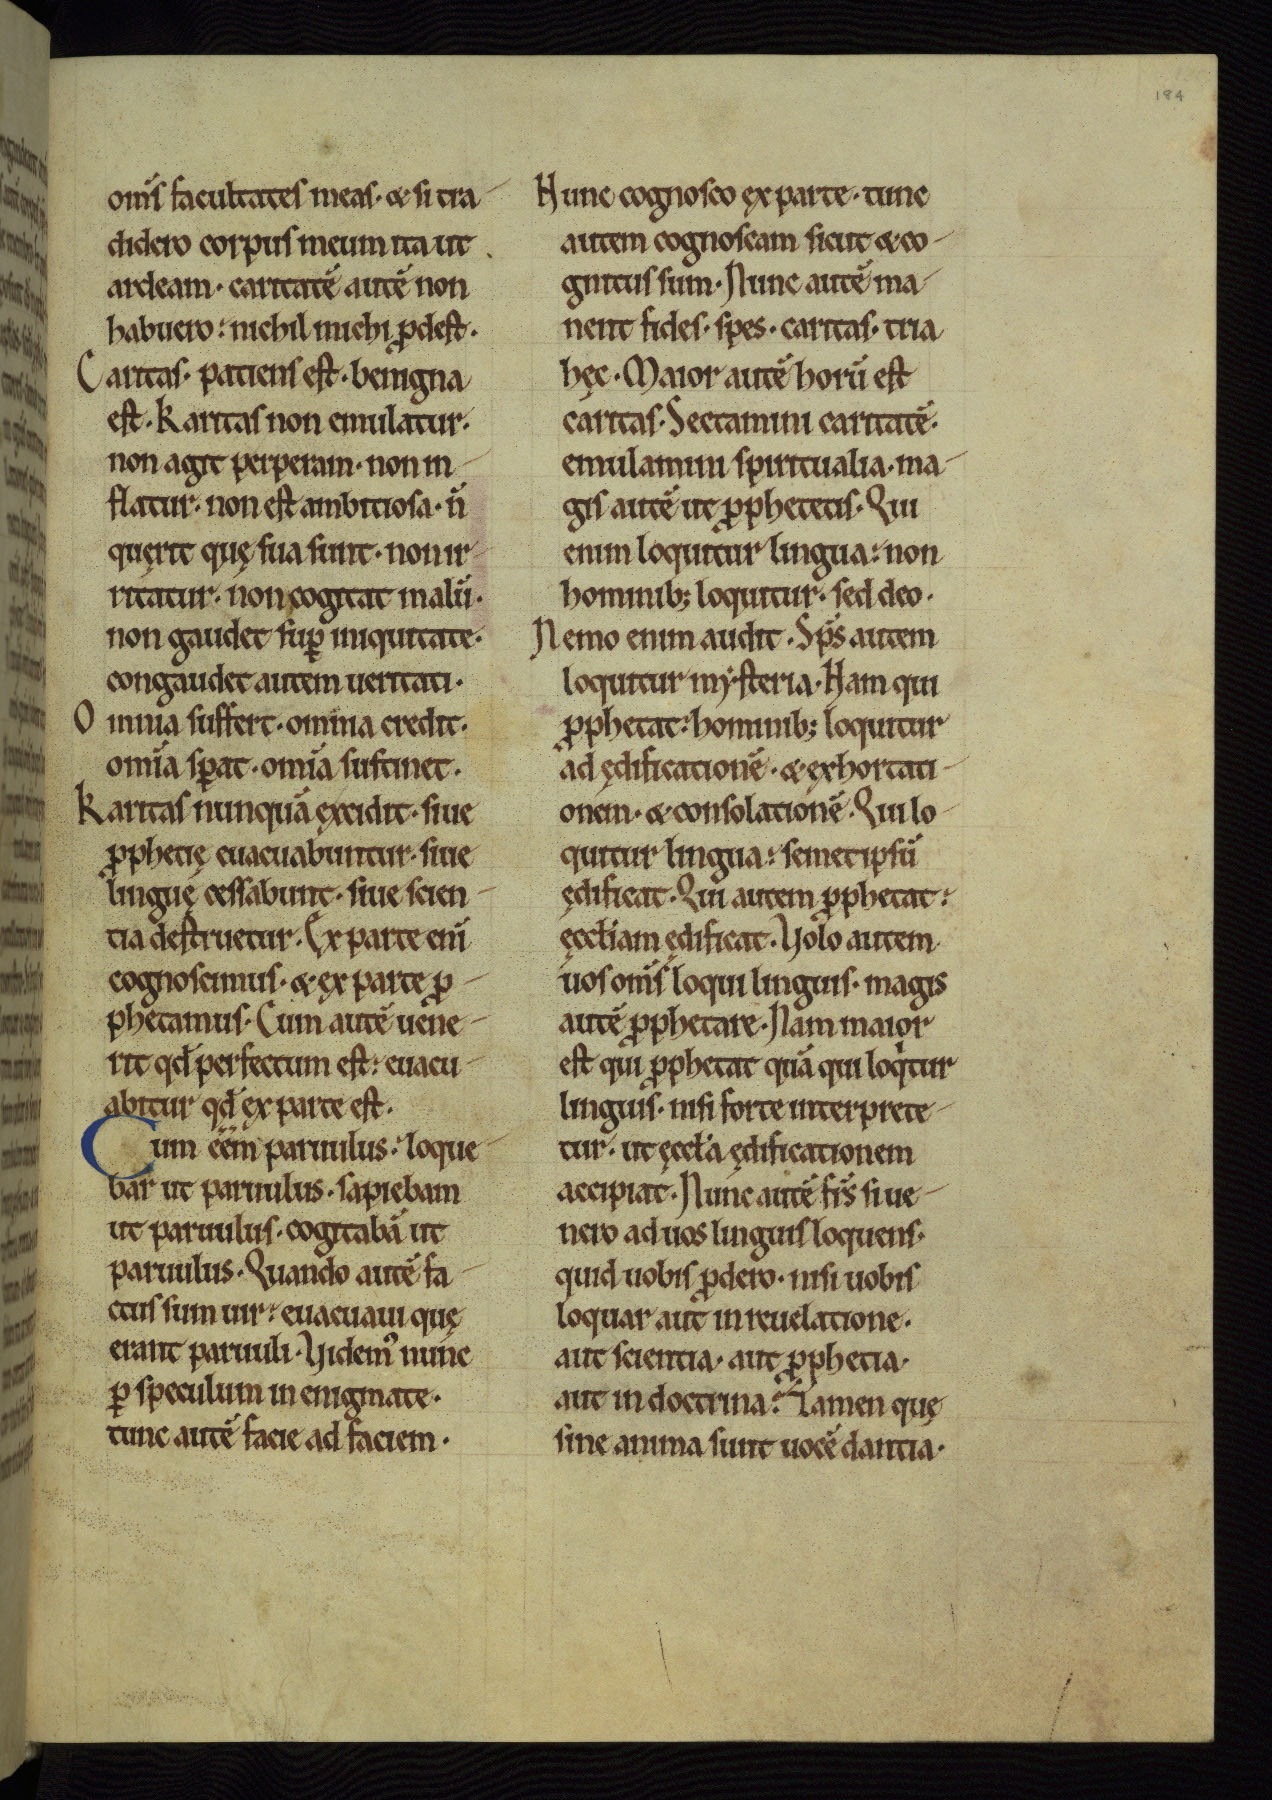 184
om̄s facultates meas· & si tra-
didero corpus meum ita ut
ardeam· caritatē autē non
habuero: nichil michi ꝓdest·
Caritas· patiens est· benigna
est· Karitas non emulatur·
non agit perperam· non in-
flatur· non est ambitiosa· n̄
querit quę sua sunt· non ir-
ritatur· non cogitat malū·
non gaudet suꝑ iniquitate·
congaudet autem ueritati·
Omnia suffert· omnia credit·
om̄ia sꝑat· om̄ia sustinet·
Karitas nunquā excidit· siue
ꝓphetię euacuabuntur· siue
linguę cessabunt· siue scien-
tia destruetur· Ex parte eni̅
cognoscimus· & ex parte ꝓ-
phetamus· Cum autē uene-
rit qđ perfectum est: euacu-
abitur qđ ex parte est·
Cum eēm paruulus: loque-
bar ut paruulus· sapiebam
ut paruulus· cogitabā ut
paruulus· Quando autē fa-
ctus sum uir: euacuaui quę
erant paruuli· Videmꝰ nunc
ꝑ speculum in enigmate·
tunc autē facie ad faciem·
Nunc cognosco ex parte· tunc
autem cognoscam sicut & co-
gnitus sum· Nunc autē ma-
nent fides· spes· caritas· tria
hęc· Maior autē horū est
caritas· Sectamini caritatē·
emulamini spiritualia· ma-
gis autē ut ꝓphetetis· Qui
enim loquitur lingua: non
hominib; loquitur· sed deo·
Nemo enim audit· Sp̄s autem
loquitur mẏsteria· Nam qui
ꝓphetat: hominib; loquitur
ad ędificationē· & exhortati-
onem· & consolationē· Qui lo-
quitur lingua: semetipsū
ędificat· Qui autem ꝓphetat:
ęccłiam ędificat· Volo autem
uos om̄s loqui linguis· magis
autē ꝓphetare· Nam maior
est qui ꝓphetat quā qui loqͥtur
linguis· nisi forte interprete-
tur· ut ęccła ędificationem
accipiat· Nunc autē fr̄s si ue-
nero ad uos linguis loquens·
quid uobis ꝓdero· nisi uobis
loquar aut in reuelatione·
aut scientia· aut ꝓphetia·
aut in doctrina: Tamen quę
sine anima sunt uocē dantia·